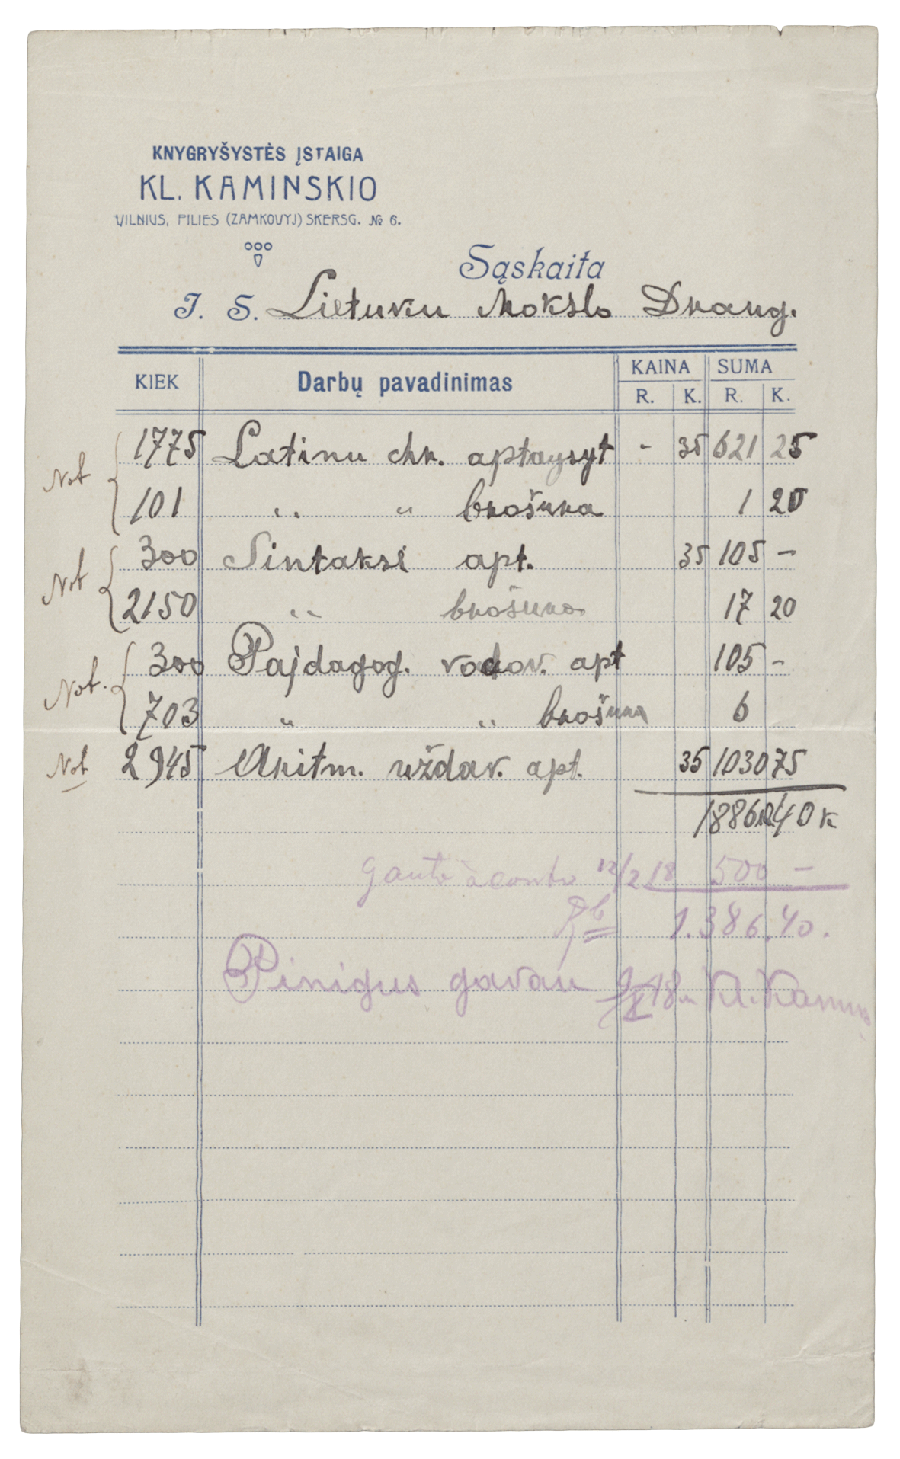 KNYGRYŠYSTĖS ĮSTAIGA
KL. KAMINSKIO
VILNIUS, PILIES (ZAMKOVYJ) SKERSG. № 6.
Sąskaita
J. S. Lietuvių Mokslo Draug.
KIEK Darbų pavadinimas KAINA SUMA
R. K. R. K.
Not 1775 Latinu chr. aptaysyt - 35 621 25
101 " " brošura 1 20
Not 300 Sintaksė apt. 35 105 -
2150 " brošura 17 20
Not. 300 Pajdagog. vadov. apt 105 -
703 " " brošura 6
Not 2945 Aritm. uždav. apt. 35 1030 75
1886 R 40 K
Gauta aconto 12/2 18 500 -
1.386.40.
Pinigus gavau 9/X 18 Kl. Kamins